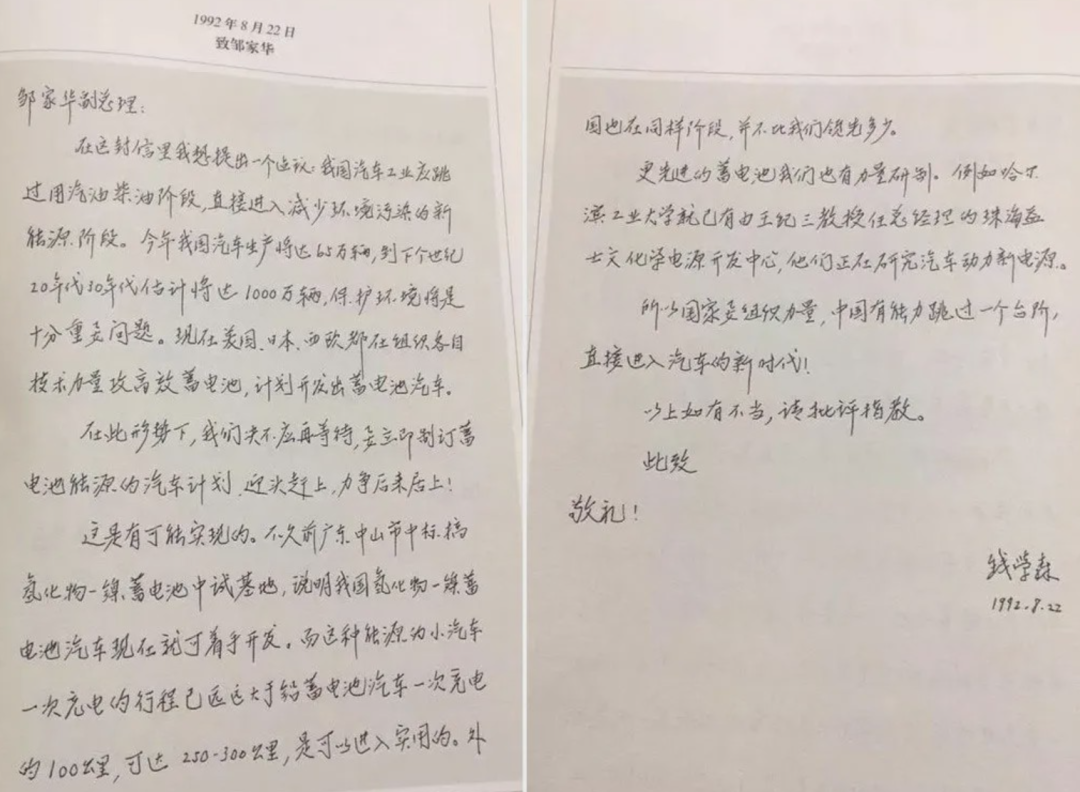 1992年8月22日
致邹家华
邹家华副总理:
在这封信里我想提出一个建议:我国汽车工业应跳
过用汽油柴油阶段,直接进入减少环境污染的新
能源阶段。今年我国汽车生产将达65万辆,到下个世纪
20年代30年代估计将达1000万辆,保护环境将是
十分重要问题。现在美国、日本、西欧都在组织各自
技术力量攻高效蓄电池,计划开发出蓄电池汽车。
在此形势下,我们决不应再等待,要立即制订蓄
电池能源的汽车计划,迎头赶上,力争后来居上!
这是有可能实现的。不久前广东中山市中标搞
氢化物-镍蓄电池中试基地,说明我国氢化物-镍蓄
电池汽车现在就可着手开发。而这种能源为小汽车
一次充电的行程已远远大于铅蓄电池汽车一次充电
的100公里,可达250-300公里,是可以进入实用的。外
国也在同样阶段,并不比我们领先多少。
更先进的蓄电池我们也有力量研制。例如哈尔
滨工业大学就已有由王纪三教授任总经理的珠海益
士文化学电源开发中心,他们正在研究汽车动力新电源。
所以国家要组织力量,中国有能力跳过一个台阶,
直接进入汽车的新时代!
以上如有不当,请批评指教。
此致
敬礼!
钱学森
1992.8.22